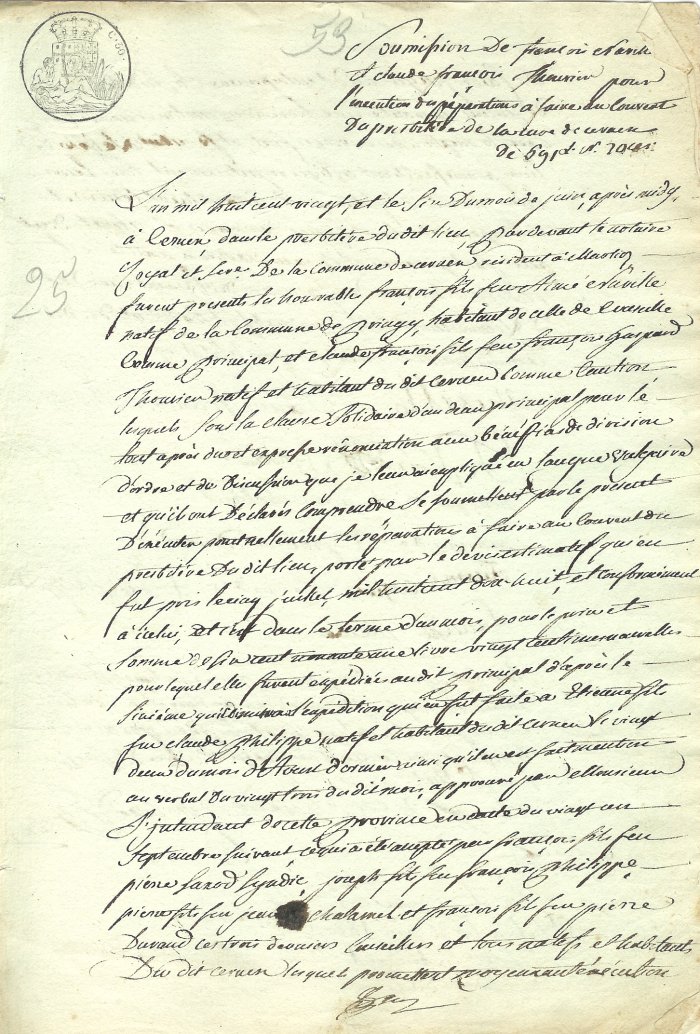 C. 50.
53
Soumission De françois
et claude françois Thouvier pour
l'execution des réparations à faire au Couvert
Du presbitère de la cure de cernex
De 691
25
L'an mil huit cent vingt, et le six Du mois de juin, après midy,
à Cernex, dans le presbitère du dit lieu, Pardevant le notaire
et De la Commune de cernex résident à
furent presents les honnorable françois fils feu Aimé
natif de la Commune de habitant de celle de
Comme Principal, et claude françois fils feu françois Gaspard
Thouvier natif et habitant du dit Cernex Comme Caution
lesquels sous la clause Solidaire d'un seul principal pour le
tout après due et expresse rénonciation aux bénéfices de division
d'ordre et de Discussion que je leur ai expliquée en langue Vulgaire
et qu'ils ont Déclarés comprendre Se soumettent par le présent
D'éxécuter ponctuellement les réparations à faire au Couvert du
presbitère Du dit lieu, portés par le devis estimatif qu'en
fut pris le cinq juillet, mil huit cent dix huit, et conformément
à icelui, et c'est dans le terme d'un mois, pour le prix et
Somme de Six cent nonante une livre vingt centimes nouvelles
pour lequel elles furent expédiées au dit principal d'après le
Sixième qu'il l'expédition qui en fut faite à Etienne fils
feu claude Philippe natif et habitant du dit Cernex le vingt
deux du mois d'Avout dernier ainsi qu'il en est fait mention
au verbal Du vingt trois du dit mois, approuvé par Monsieur
L'intendant de cette province en date du vingt un
Septembre suivant ce qui a été accepté par françois fils feu
pierre Sindic, joseph fils feu françois Philippe
pierre fils feu Chalamel et françois fils feu pierre
Durand ces trois derniers Conseillers et tous natifs et habitants
Du dit cernex lesquels promettent moyennant éxécution